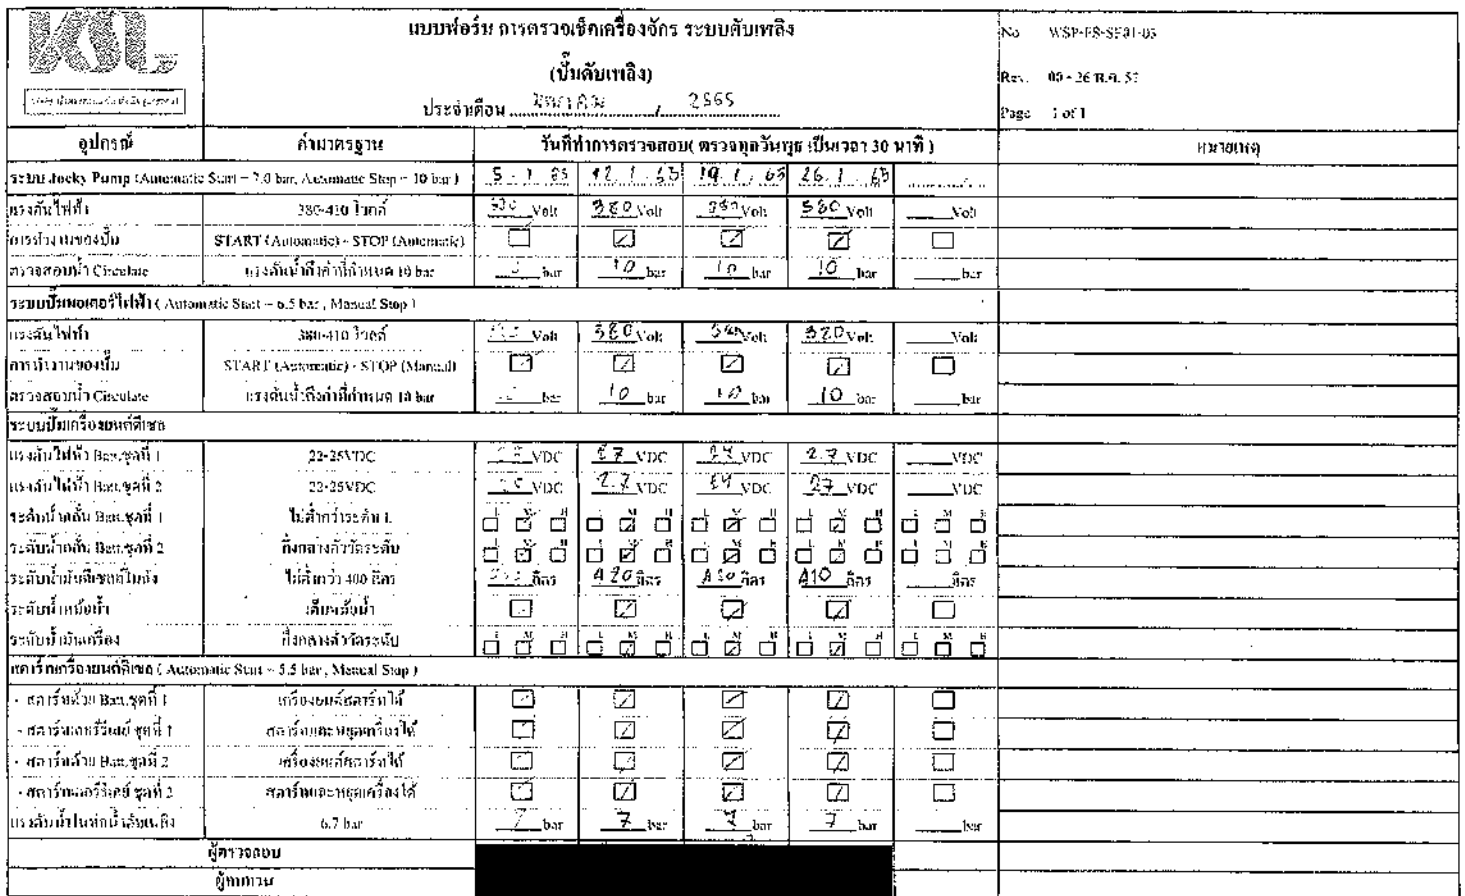 KSL
แบบฟอร์ม การตรวจเช็คเครื่องจักร ระบบดับเพลิง
(ปั๊มดับเพลิง)
ประจำเดือน มกราคม / 2565
No WSP-FS-SF01-03
Rev. 00 - 26 พ.ค. 57
Page 1 of 1
อุปกรณ์ ค่ามาตรฐาน วันที่ทำการตรวจสอบ( ตรวจทุกวันพุธ เป็นเวลา 30 นาที ) หมายเหตุ
ระบบ Jocky Pump (Automatic Start = 7.0 bar, Automatic Stop = 10 bar) 5.1.65 12.1.65 19.1.65 26.1.65
แรงดันไฟฟ้า 380-410 โวลต์ Volt 380 Volt 380 Volt 380 Volt Volt
การทำงานของปั๊ม START (Automatic) - STOP (Automatic)
ตรวจสอบน้ำ Circulate แรงดันน้ำถึงค่าที่กำหนด 10 bar bar 10 bar 10 bar 10 bar bar
ระบบปั๊มมอเตอร์ไฟฟ้า ( Automatic Start = 6.5 bar , Manual Stop )
แรงดันไฟฟ้า 380-410 โวลต์ Volt 380 Volt 380 Volt 380 Volt Volt
การทำงานของปั๊ม START (Automatic) - STOP (Manual)
ตรวจสอบน้ำ Circulate แรงดันน้ำถึงค่าที่กำหนด 10 bar bar 10 bar 10 bar 10 bar bar
ระบบปั๊มเครื่องยนต์ดีเซล
แรงดันไฟฟ้า Batt.ชุดที่ 1 22-25VDC VDC 27 VDC 24 VDC 27 VDC VDC
แรงดันไฟฟ้า Batt.ชุดที่ 2 22-25VDC VDC 27 VDC 24 VDC 27 VDC VDC
ระดับน้ำกลั่น Batt.ชุดที่ 1 ไม่ต่ำกว่าระดับ L L M H L M H L M H L M H L M H
ระดับน้ำกลั่น Batt.ชุดที่ 2 กึ่งกลางตัววัดระดับ L M H L M H L M H L M H L M H
ระดับน้ำมันดีเซลในถัง ไม่ต่ำกว่า 400 ลิตร ลิตร 420 ลิตร ลิตร 410 ลิตร ลิตร
ระดับน้ำหม้อน้ำ เต็มหม้อน้ำ
ระดับน้ำมันเครื่อง กึ่งกลางตัววัดระดับ L M H L M H L M H L M H L M H
สตาร์ทเครื่องยนต์ดีเซล ( Automatic Start = 5.5 bar , Manual Stop )
- สตาร์ทด้วย Batt.ชุดที่ 1 เครื่องยนต์สตาร์ทได้
- สตาร์ทเตอร์รีเลย์ ชุดที่ 1 สตาร์ทและหยุดเครื่องได้
- สตาร์ทด้วย Batt.ชุดที่ 2 เครื่องยนต์สตาร์ทได้
- สตาร์ทเตอร์รีเลย์ ชุดที่ 2 สตาร์ทและหยุดเครื่องได้
แรงดันน้ำในท่อน้ำดับเพลิง 6.7 bar 7 bar 7 bar 7 bar 7 bar bar
ผู้ตรวจสอบ
ผู้ทบทวน